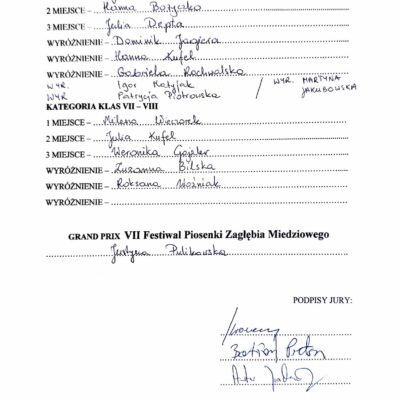 2 MIEJSCE – Hanna Bożyczko
3 MIEJSCE – Julia Depta
WYRÓŻNIENIE – Dominik Jagiera
WYRÓŻNIENIE – Hanna Kufel
WYRÓŻNIENIE – Gabriela Rochwalska
WYR. Igor / WYR. MARTYNA JAKUBOWSKA
WYR Patrycja Piotrowska
KATEGORIA KLAS VII – VIII
1 MIEJSCE – Milena Wieczorek
2 MIEJSCE – Julia Kufel
3 MIEJSCE – Weronika
WYRÓŻNIENIE – Zuzanna Bilska
WYRÓŻNIENIE – Roksana Woźniak
WYRÓŻNIENIE –
GRAND PRIX VII Festiwal Piosenki Zagłębia Miedziowego
Justyna Pulikowska
PODPISY JURY: